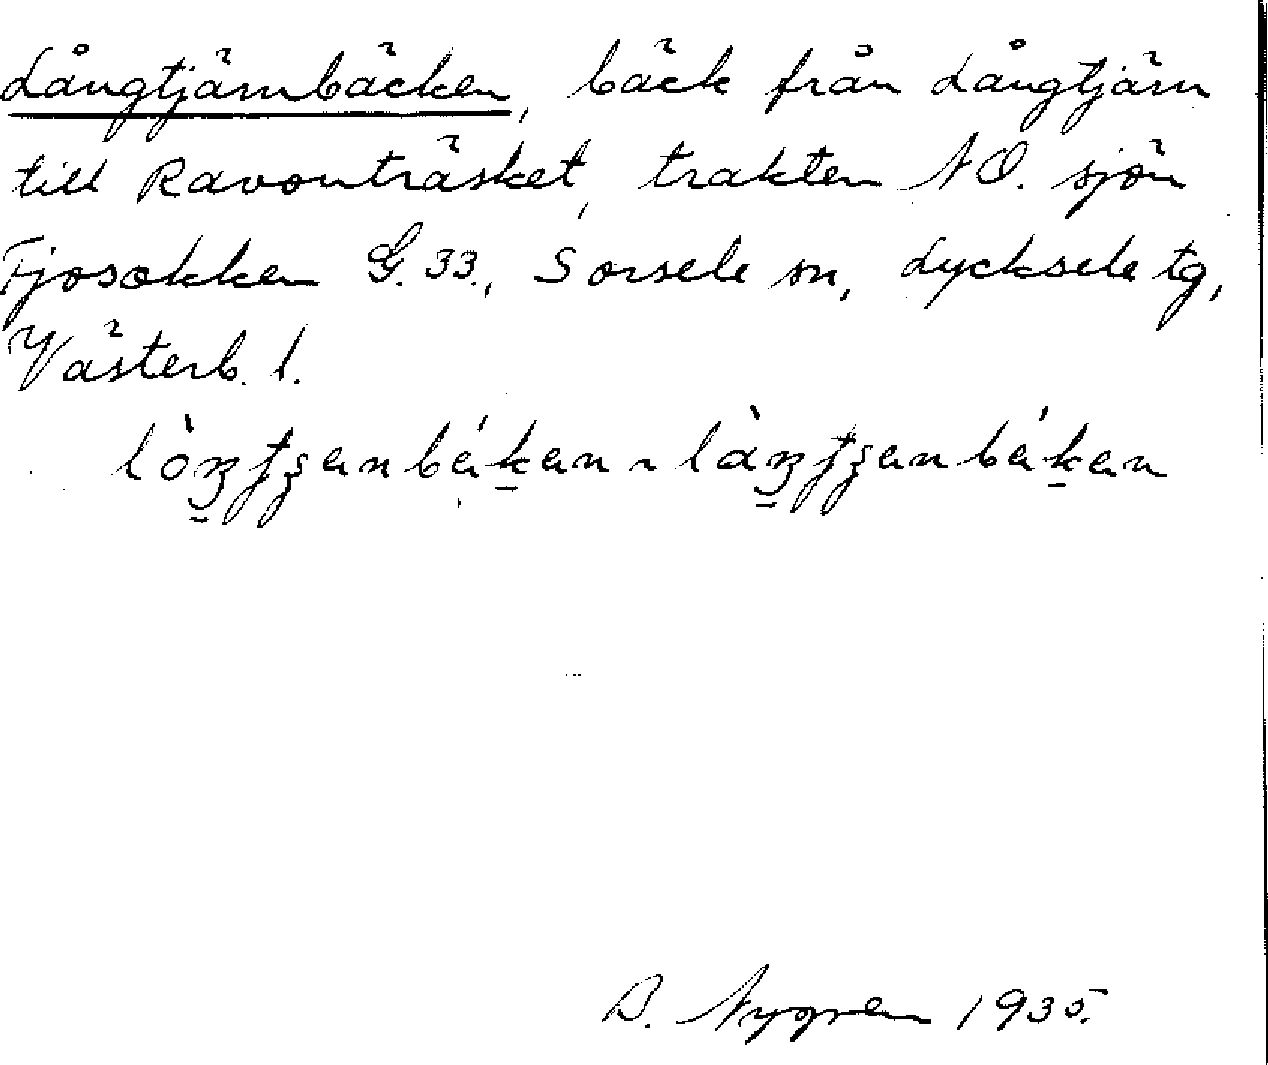 Långtjärnbäcken, bäck från Långtjärn
till Ravonträsket, trakten NO. sjön
Fjosokken G. 33., Sorsele sn, Lycksele tg,
Västerb. l.
B. Nygren 1935.